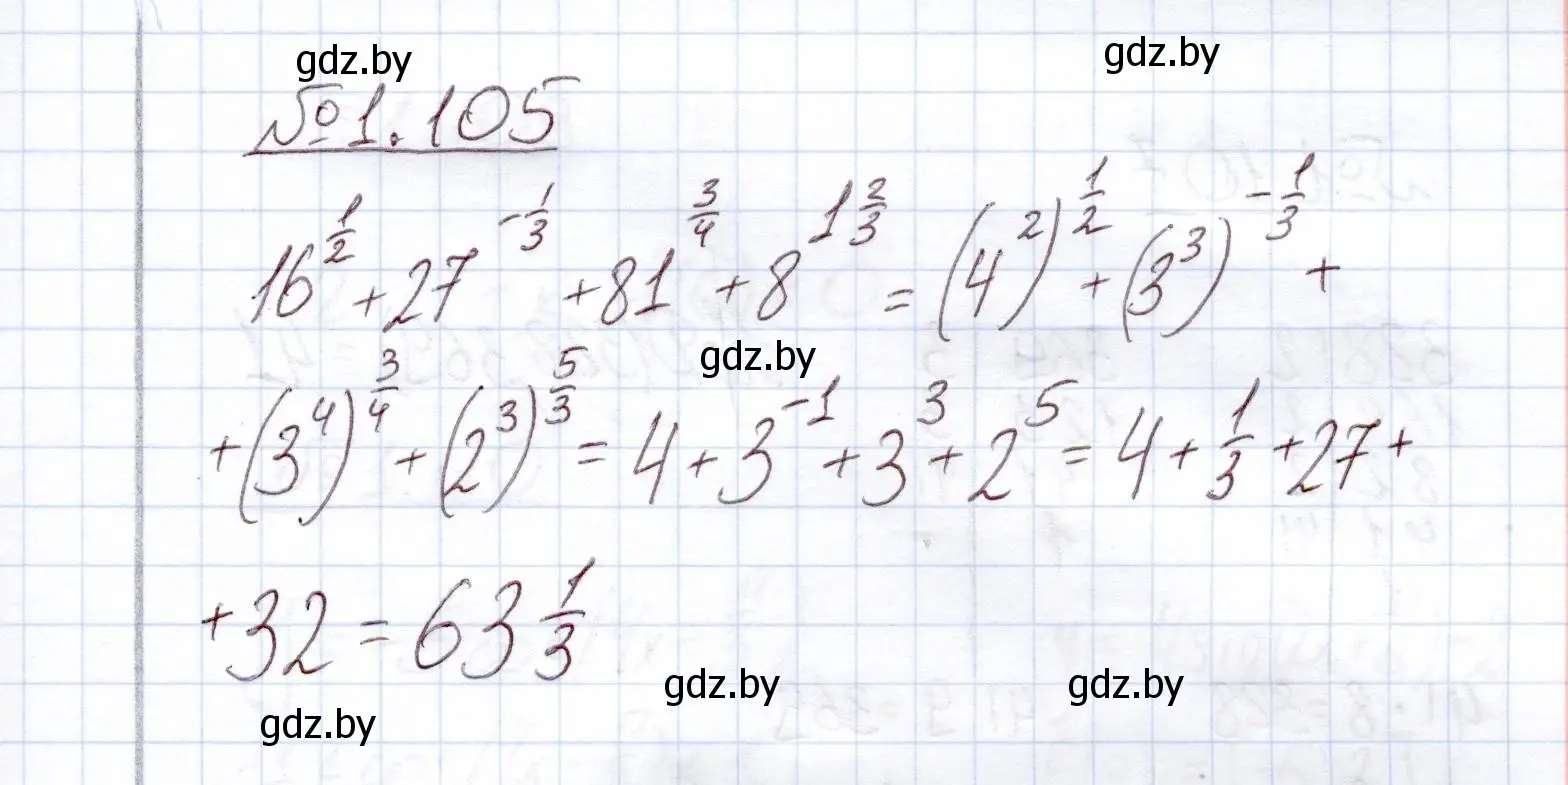 gdz.by gdz.by
№1.105
16^(1/2) + 27^(-1/3) + 81^(3/4) + 8^(1 2/3) = (4^2)^(1/2) + (3^3)^(-1/3) +
gdz.by
+ (3^4)^(3/4) + (2^3)^(5/3) = 4 + 3^(-1) + 3^3 + 2^5 = 4 + 1/3 + 27 +
+ 32 = 63 1/3
gdz.by gdz.by
gdz.by